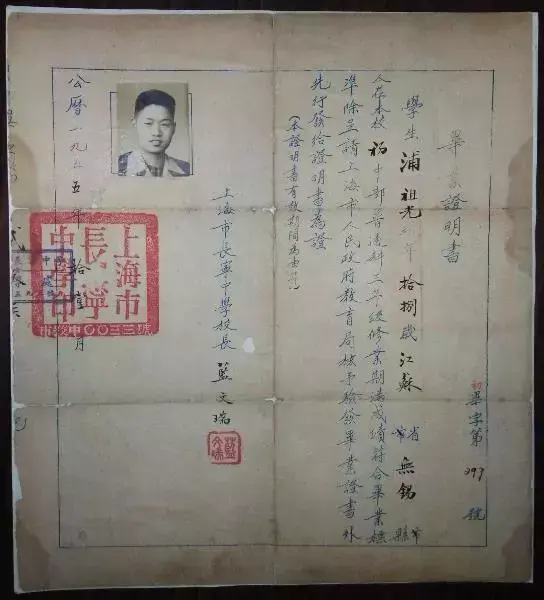 畢業證明書
初畢字第297號
學生浦祖光 年拾捌歲江蘇省市無錫市縣
人在本校初中部普通科三年級修業期滿成績符合畢業標
準除呈請上海市人民政府教育局核予驗發畢業證書外
先行發給證明書為證
(本證明書有效期間為
上海市長寧中學校長 藍文瑞
公曆一九五五年拾 月
上海市
長寧
中學印
市校中〇〇三三號